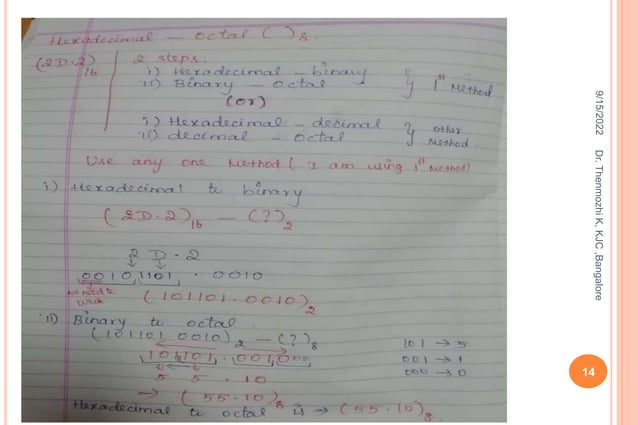 Hexadecimal - octal ( )8.
(2D.2)16
2 steps.
i) Hexadecimal - binary
ii) Binary - octal } 1st Method
(or)
i) Hexadecimal - decimal
ii) decimal - octal } other Method.
Use any one Method ( I am using 1st Method)
i) Hexadecimal to binary
(2D.2)16 - (?)2
2 D . 2
0010 1101 . 0010
no need to write
(101101.0010)2
ii) Binary to octal.
(101101.0010)2 - (?)8
101 → 5
001 → 1
000 → 0
101101 . 001000
5 5 . 10
→ (55.10)8
Hexadecimal to octal is → (55.10)8.
9/15/2022
Dr. Thenmozhi K, KJC ,Bangalore
14